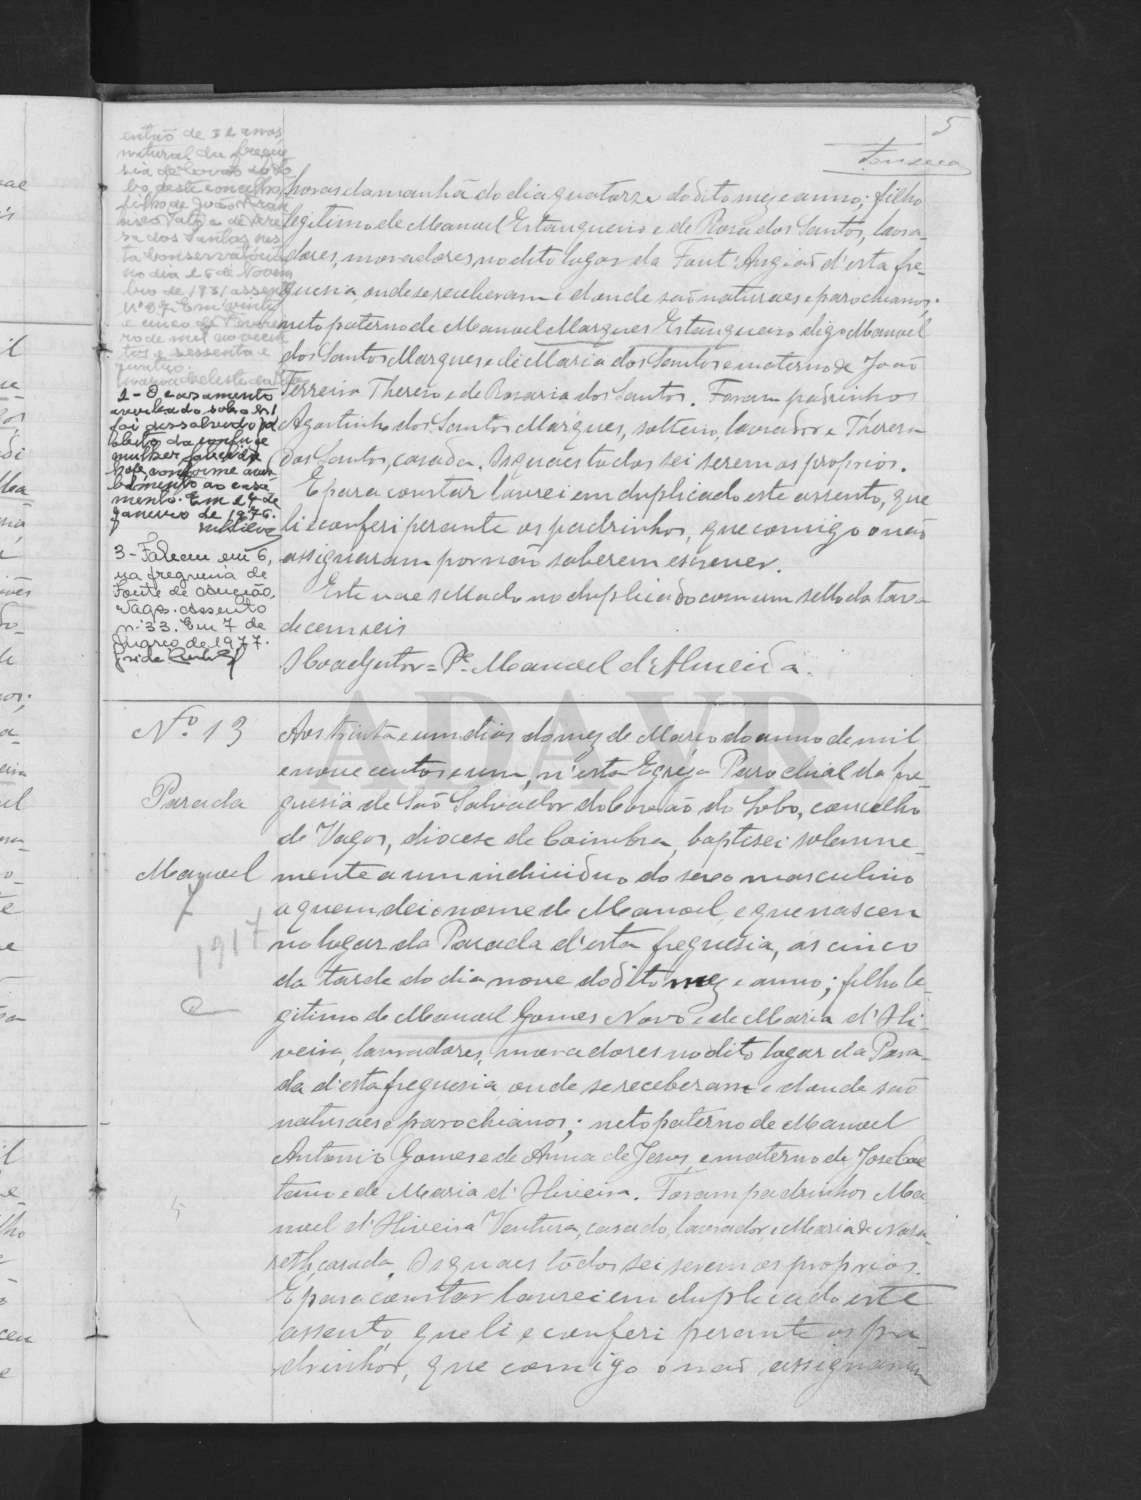 5
Fonseca
então de 32 annos
natural da fregue
sia de Covão do Lo
bo, deste concelho,
filho de João Fran
ta Conservatória
no dia 28 de Novem
bro de 1931 assen
nº 97. Em vinte
e cinco de Feverei
ro de mil novecen
tos e sessenta e
2 - O casamento
averbado sob o nº 1
foi dissolvido por
obito da conjuge
mulher falecida
hoje, conforme aver
bamento ao casa
mento. Em 14 de
Janeiro de 1976.
3 - Faleceu em 6,
na freguesia de
Fonte de Angeão,
Vagos. Assento
nº 33. Em 7 de
Março de 1977.
horas da manhã do dia quatorze do dito mez e anno; filho
legitimo de Manoel Estanqueiro e de Rosa dos Santos, lavra-
dores, moradores no dito logar da Font'Angião d'esta fre-
guesia, onde se receberam e d'onde são naturaes e parochianos;
neto paterno de Manoel Marques Estanqueiro digo Manoel
dos Santos Marques e de Maria dos Santos e materno de João
Ferreira Thereso e de Rosaria dos Santos. Foram padrinhos
Agostinho dos Santos Marques, solteiro, lavrador e Theresa
dos Santos, casada. Os quaes todos sei serem os proprios.
E para constar lavrei em duplicado este assento, que
li e conferi perante os padrinhos, que comigo o não
assignaram por não saberem escrever.
Este vae sellado no duplicado com um sello da taxa
de cem reis
O Coadjutor = Pe. Manoel d'Almeida.
ADAVR
Nº 13
Parada
Manoel
1917
Aos trinta e um dias do mez de Março do anno de mil
e nove centos e um, n'esta Egreja Parochial da fre-
guesia de São Salvador do Covão do Lobo, concelho
de Vagos, diocese de Coimbra, baptisei solemne-
mente a um individuo do sexo masculino
a quem dei o nome de Manoel, e que nasceu
no logar da Parada d'esta freguesia, ás cinco
da tarde do dia nove do dito mez e anno; filho le-
gitimo de Manoel Gomes Novo e de Maria d'Oli-
veira, lavradores, moradores no dito logar da Para-
da d'esta freguesia, onde se receberam e d'onde são
naturaes e parochianos; neto paterno de Manoel
Antonio Gomes e de Anna de Jesus, e materno de José Cae
tano e de Maria d'Oliveira. Foram padrinhos Ma
noel d'Oliveira Ventura, casado, lavrador, e Maria de Nasa-
reth, casada. Os quaes todos sei serem os proprios.
E para constar lavrei em duplicado este
assento, que li e conferi perante os pa-
drinhos, que comigo o não assignaram